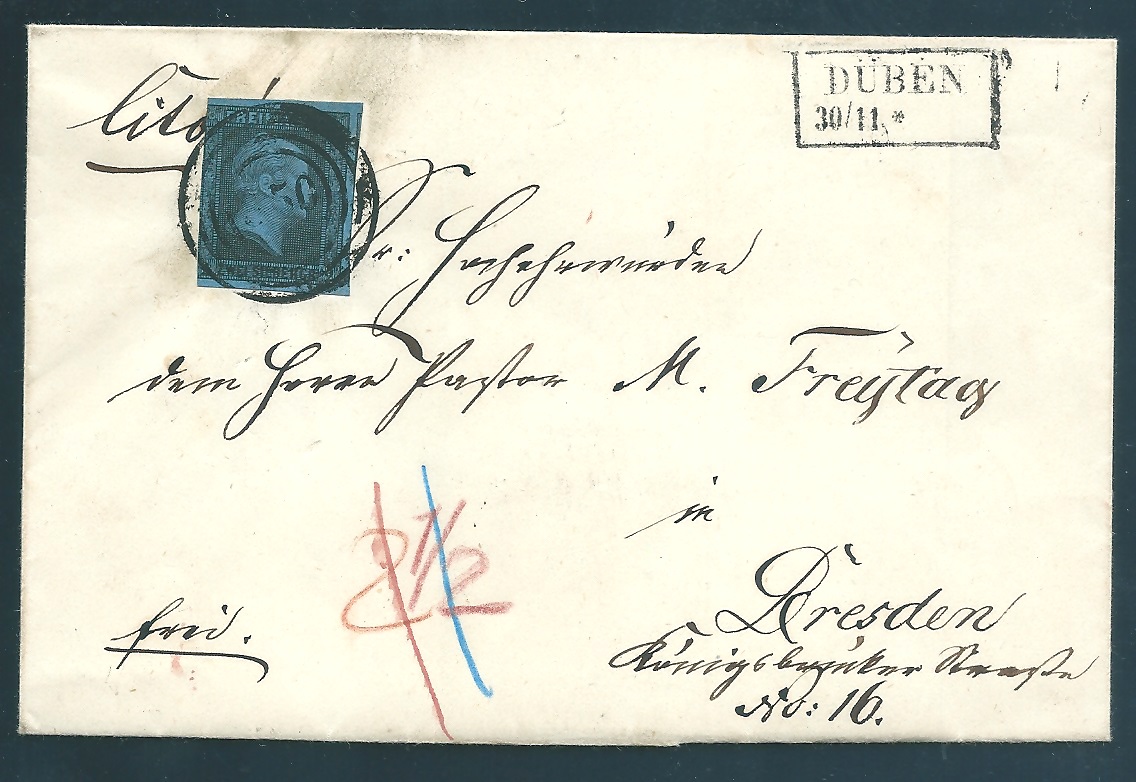 cito
DÜBEN
30/11 *
Sr: Hochehrwürden
dem Herrn Pastor M. Freytag
in
Dresden
Königsbrücker Straße
No: 16.
frei.
2 1/2